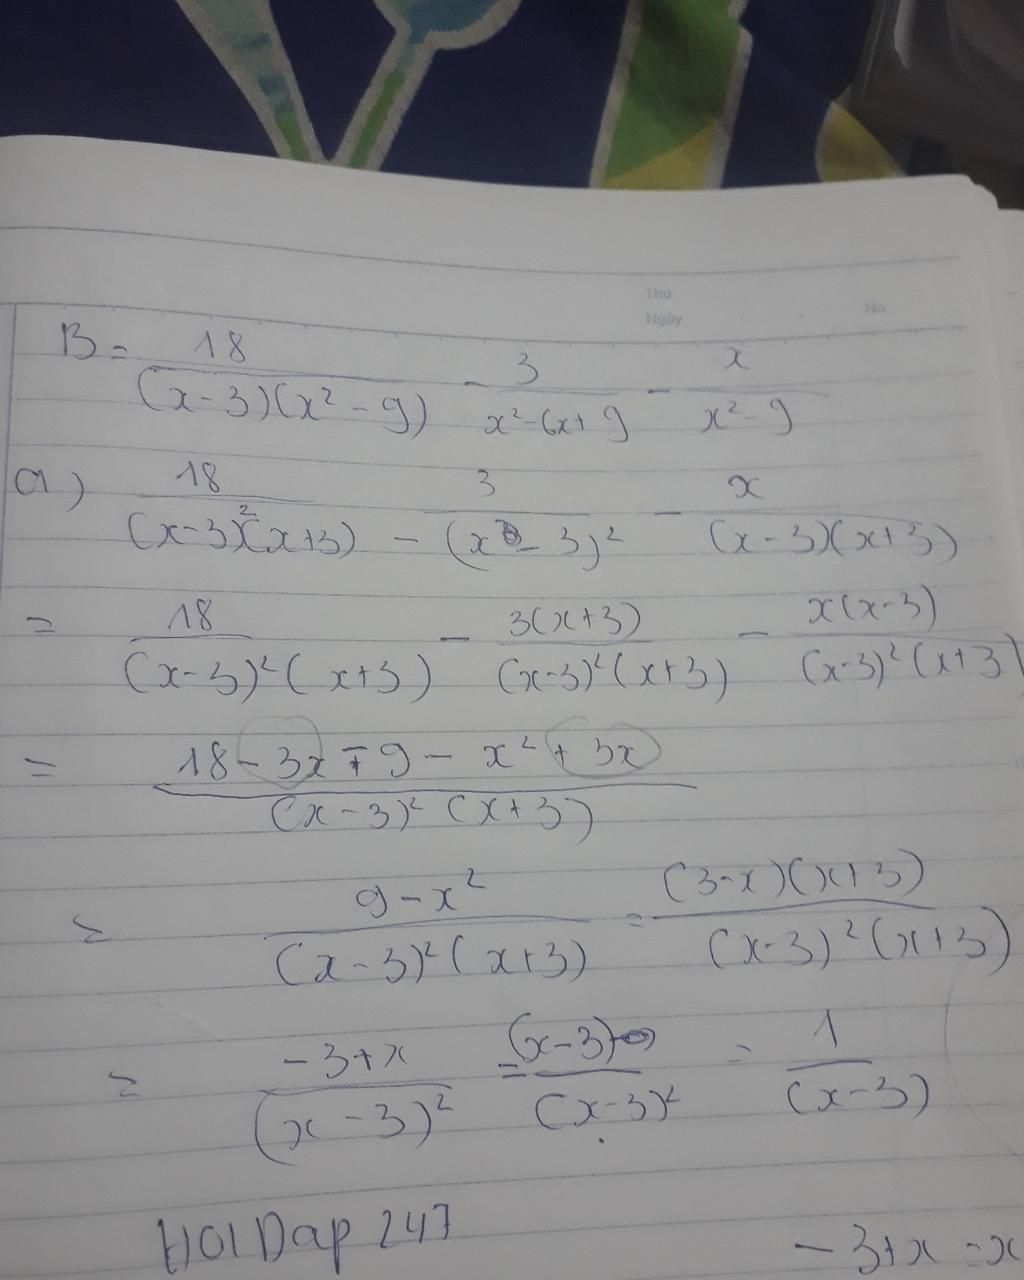 Thứ
Ngày No
B = 18/((x-3)(x²-9)) - 3/(x²-6x+9) - x/(x²-9)
a) 18/((x-3)²(x+3)) - 3/(x-3)² - x/((x-3)(x+3))
= 18/((x-3)²(x+3)) - 3(x+3)/((x-3)²(x+3)) - x(x-3)/((x-3)²(x+3))
= (18-3x-9-x²+3x)/((x-3)²(x+3))
= (9-x²)/((x-3)²(x+3)) = (3-x)(x+3)/((x-3)²(x+3))
= (-3+x)/(x-3)² = (x-3)/(x-3)² = 1/(x-3)
HOI Dap 247
-3+x = x